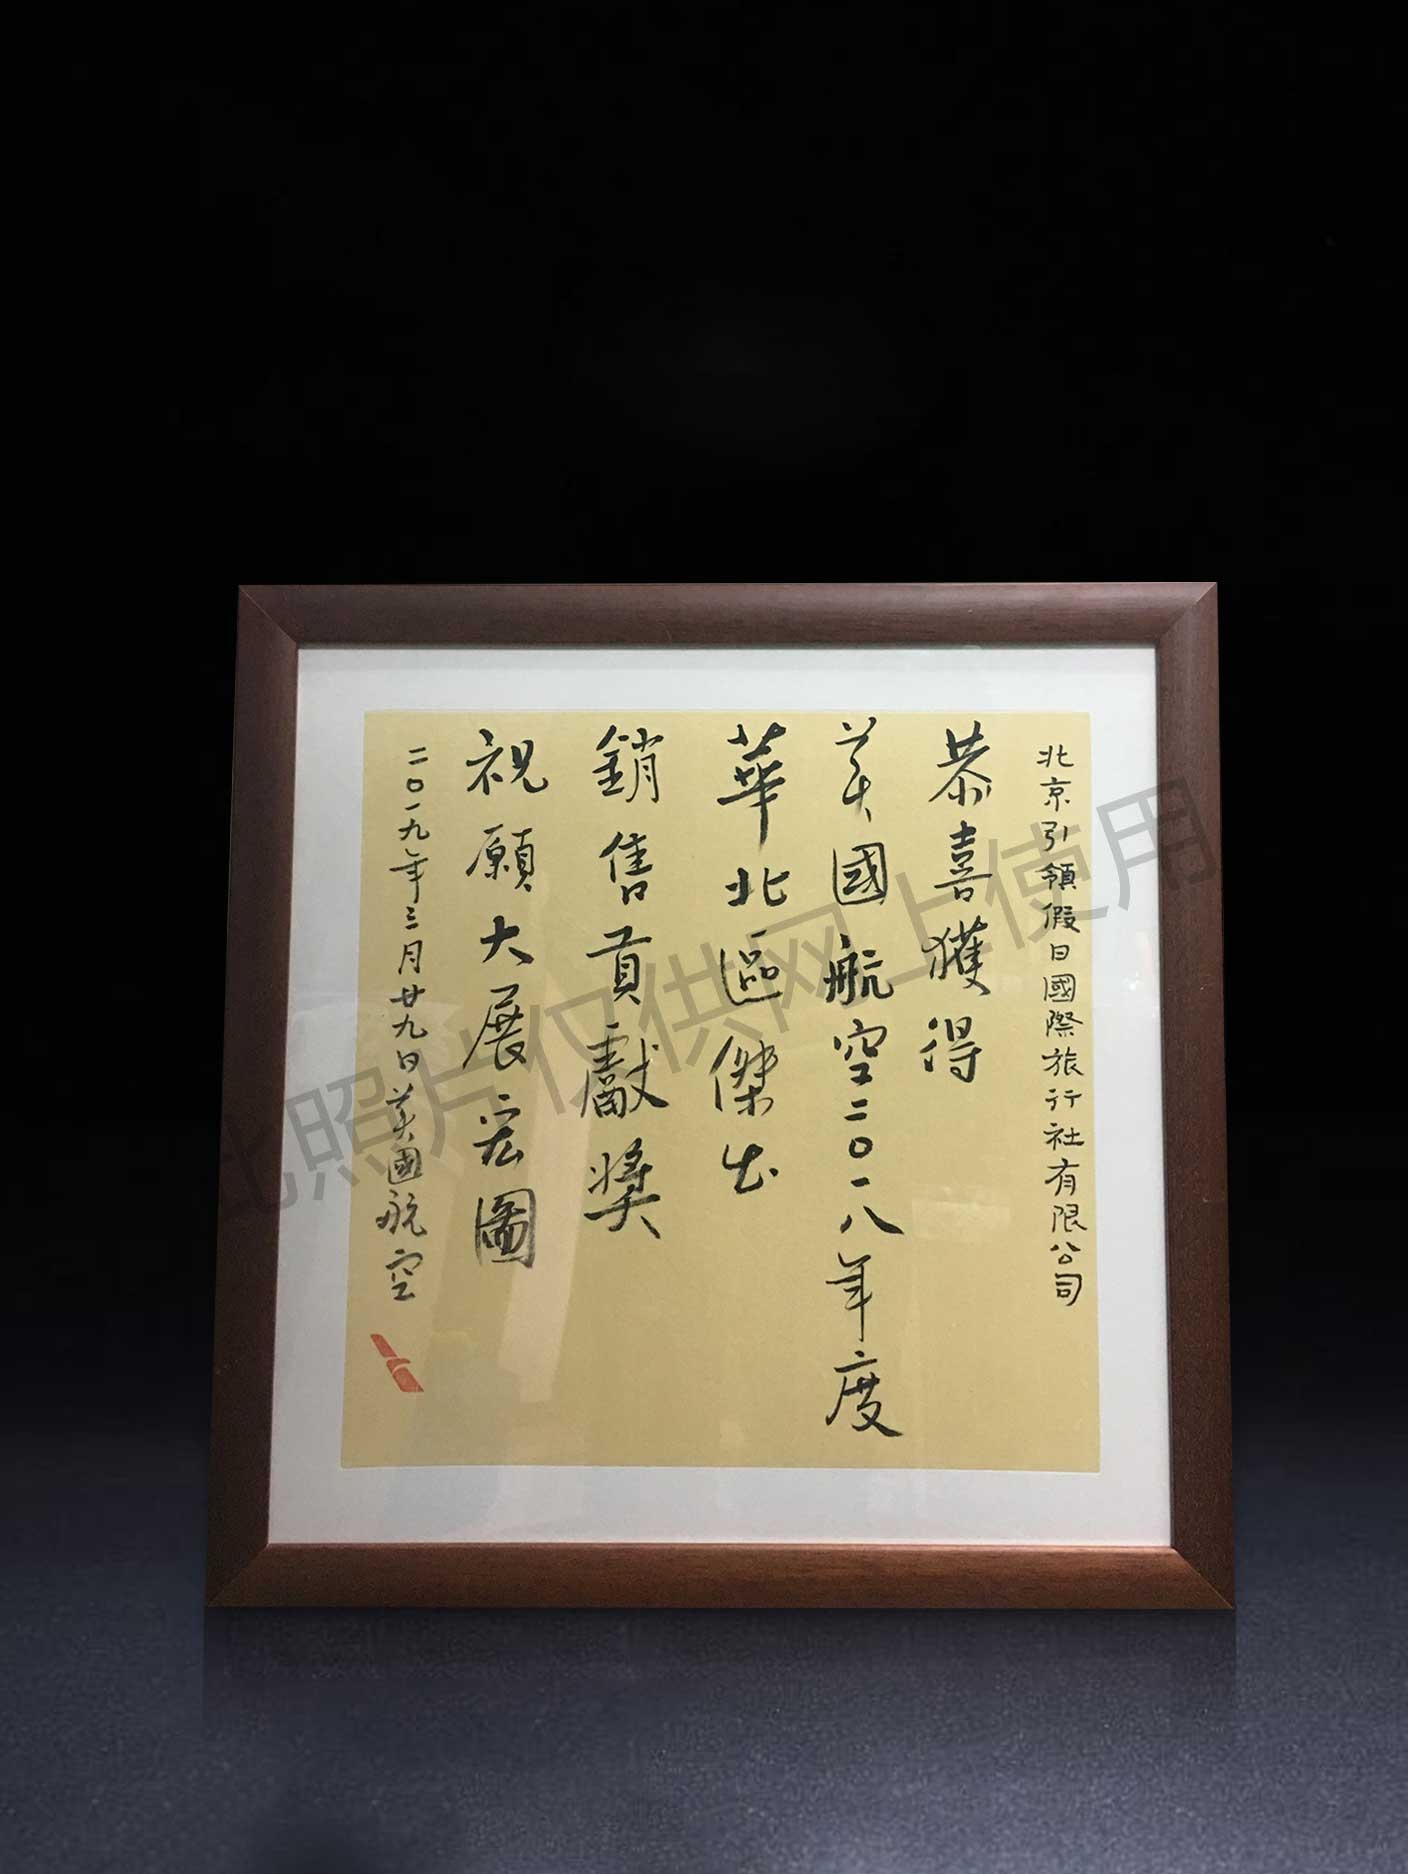 北京引領假日國際旅行社有限公司
恭喜獲得
美國航空二〇一八年度
華北區傑出
銷售貢獻獎
祝願大展宏圖
二〇一九年三月廿九日美國航空
此照片仅供网上使用